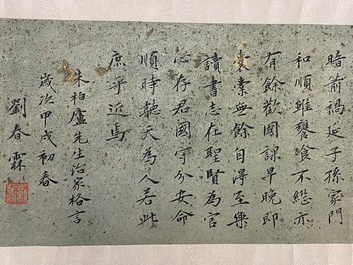 暗箭禍延子孫家門
和順雖饔飧不繼亦
有餘歡國課早完即
囊橐無餘自得至樂
讀書志在聖賢為官
心存君國守分安命
順時聽天為人若此
庶乎近焉
朱柏廬先生治家格言
歲次甲戌初春
劉春霖